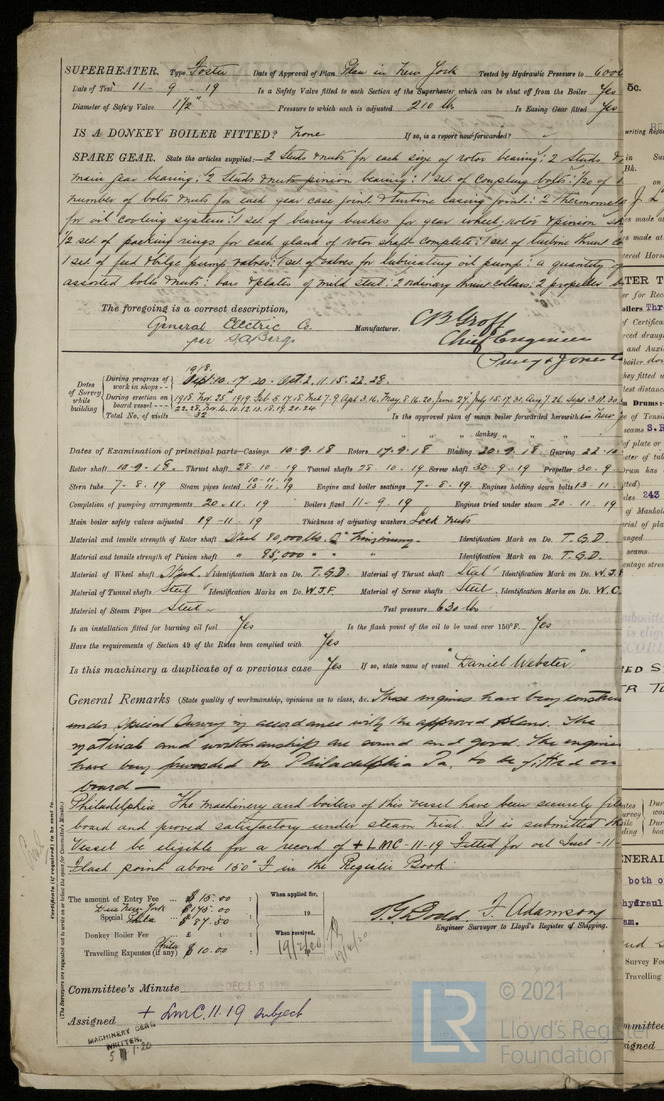 SUPERHEATER. Type Foster Date of Approval of Plan Plan in New York Tested by Hydraulic Pressure to 600
Date of Test 11-9-19 Is a Safety Valve fitted to each Section of the Superheater which can be shut off from the Boiler Yes
Diameter of Safety Valve 1½" Pressure to which each is adjusted 210 lbs Is Easing Gear fitted Yes
IS A DONKEY BOILER FITTED? None If so, is a report now forwarded? -
SPARE GEAR. State the articles supplied:— 2 Studs & nuts for each size of rotor bearing: 2 Studs &
main gear bearing: 2 Studs & nuts pinion bearing: 1 set of coupling bolts: 1/20 of
number of bolts & nuts for each gear case joint & turbine casing joint: 2 Thermomet
for oil cooling system: 1 set of bearing bushes for gear wheel, rotor & pinion
½ set of packing rings for each gland of rotor shaft complete: 1 set of turbine thrust
1 set of feed & bilge pump valves: 1 set of valves for lubricating oil pump: a quantity of
assorted bolts & nuts: bars & plates of mild steel: 2 ordinary thrust collars: 2 propeller
The foregoing is a correct description,
General Electric Co. Manufacturer. Chief Engineer
per Pusey & Jones
1918.
Dates of Survey while building
During progress of work in shops -- Sept. 10. 17. 20. Oct. 2. 11. 15. 22. 28.
During erection on board vessel --- 1918. Nov. 25. 1919. Feb. 5. 17. 18. Mch 7. 9. Apl. 3. 16. May 8. 16. 20. June 27. July 15. 17. 31. Aug 7. 26. Sept 3. 11. 30
22. 28. Nov. 4. 10. 12. 13. 18. 19. 20. 24.
Total No. of visits 32 Is the approved plan of main boiler forwarded herewith in New
" " " donkey " " "
Dates of Examination of principal parts—Casings 10.9.18 Rotors 17.9.18 Blading 20.9.18 Gearing 22.10
Rotor shaft 10-9-18. Thrust shaft 28-10-19 Tunnel shafts 28-10-19 Screw shaft 30-9-19 Propeller 30.9
Stern tube 7-8-19 Steam pipes tested 10-11-19 13-11-19 Engine and boiler seatings 7-8-19. Engines holding down bolts 13-11
Completion of pumping arrangements 20-11-19 Boilers fixed 11-9-19 Engines tried under steam 20-11-19
Main boiler safety valves adjusted 19-11-19 Thickness of adjusting washers Lock nuts
Material and tensile strength of Rotor shaft Steel 80,000 lbs. Identification Mark on Do. T.G.D.
Material and tensile strength of Pinion shaft " 85,000 " " " Identification Mark on Do. T.G.D.
Material of Wheel shaft Steel. Identification Mark on Do. T.G.D. Material of Thrust shaft Steel Identification Mark on Do. W.J.F
Material of Tunnel shafts Steel Identification Marks on Do. W.J.F. Material of Screw shafts Steel. Identification Marks on Do. W.C.
Material of Steam Pipes Steel Test pressure 630 lbs
Is an installation fitted for burning oil fuel Yes Is the flash point of the oil to be used over 150°F. Yes
Have the requirements of Section 49 of the Rules been complied with Yes
Is this machinery a duplicate of a previous case Yes If so, state name of vessel "Daniel Webster"
General Remarks (State quality of workmanship, opinions as to class, &c. These engines have been
under Special Survey in accordance with the approved plans. The
materials and workmanship are sound and good. The engines
have been proceeded to Philadelphia Pa. to be fitted on
board —
Philadelphia The machinery and boilers of this vessel have been securely
board and proved satisfactory under steam trial. It is submitted
Vessel be eligible for a record of + LMC-11-19 Fitted for oil fuel -11-
Flash point above 150°F in the Register Book.
Certificate (if required) to be sent to
(The Surveyors are requested not to write on or below the space for Committee's Minute.)
The amount of Entry Fee .. $ 15.00 When applied for,
New York $ 175.00
Special Phila $ 87.50 19
Donkey Boiler Fee £ : : When received,
Travelling Expenses (if any) Phila $ 10.00
T.G. Dodd J. Adamson
Engineer Surveyor to Lloyd's Register of Shipping.
Committee's Minute
Assigned + LMC. 11.19 subject
MACHINERY CERT. WRITTEN.
LR © 2021
Lloyd's Register
Foundation